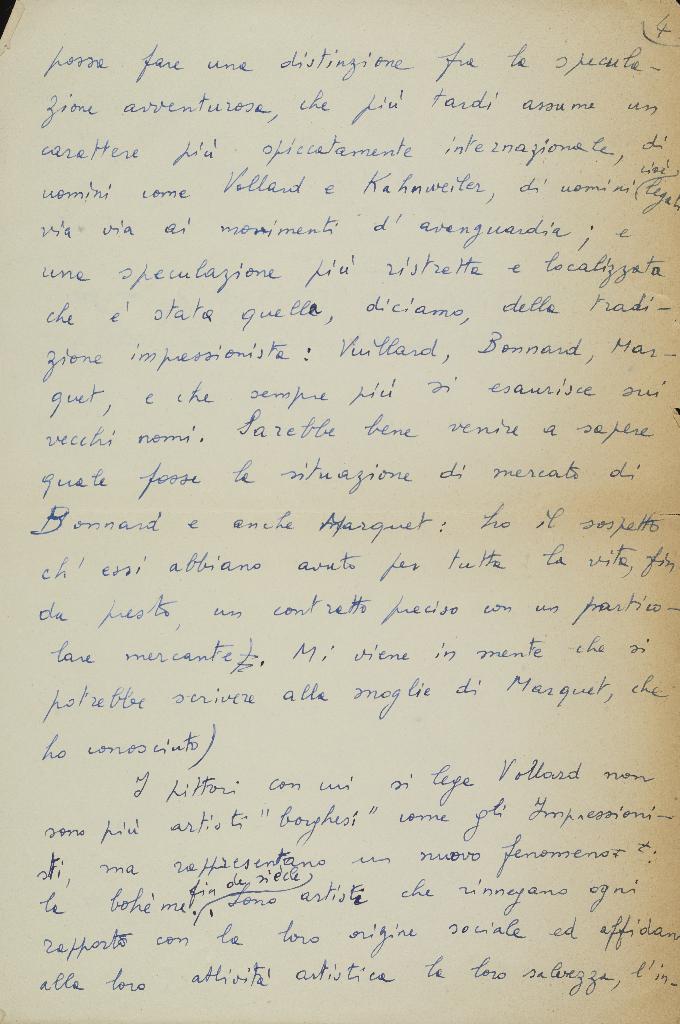 4
possa fare una distinzione fra la specula-
zione avventurosa, che più tardi assume un
carattere più spiccatamente internazionale, di
uomini come Vollard e Kahnweiler, di uomini cioè legati
via via ai movimenti d'avanguardia; e
una speculazione più ristretta e localizzata
che è stata quella, diciamo, della tradi-
zione impressionista: Vuillard, Bonnard, Mar-
quet, e che sempre più si esaurisce sui
vecchi nomi. Sarebbe bene venire a sapere
quale fosse la situazione di mercato di
Bonnard e anche Marquet: ho il sospetto
ch'essi abbiano avuto per tutta la vita, fin
da presto, un contratto preciso con un partico-
lare mercante. Mi viene in mente che si
potrebbe scrivere alla moglie di Marquet, che
ho conosciuto)
I pittori con cui si lega Vollard non
sono più artisti "borghesi" come gli Impressioni-
sti, ma rappresentano un nuovo fenomeno:
la bohème fin de siècle. Sono artisti che rinnegano ogni
rapporto con la loro origine sociale ed affidano
alla loro attività artistica la loro salvezza, l'in-